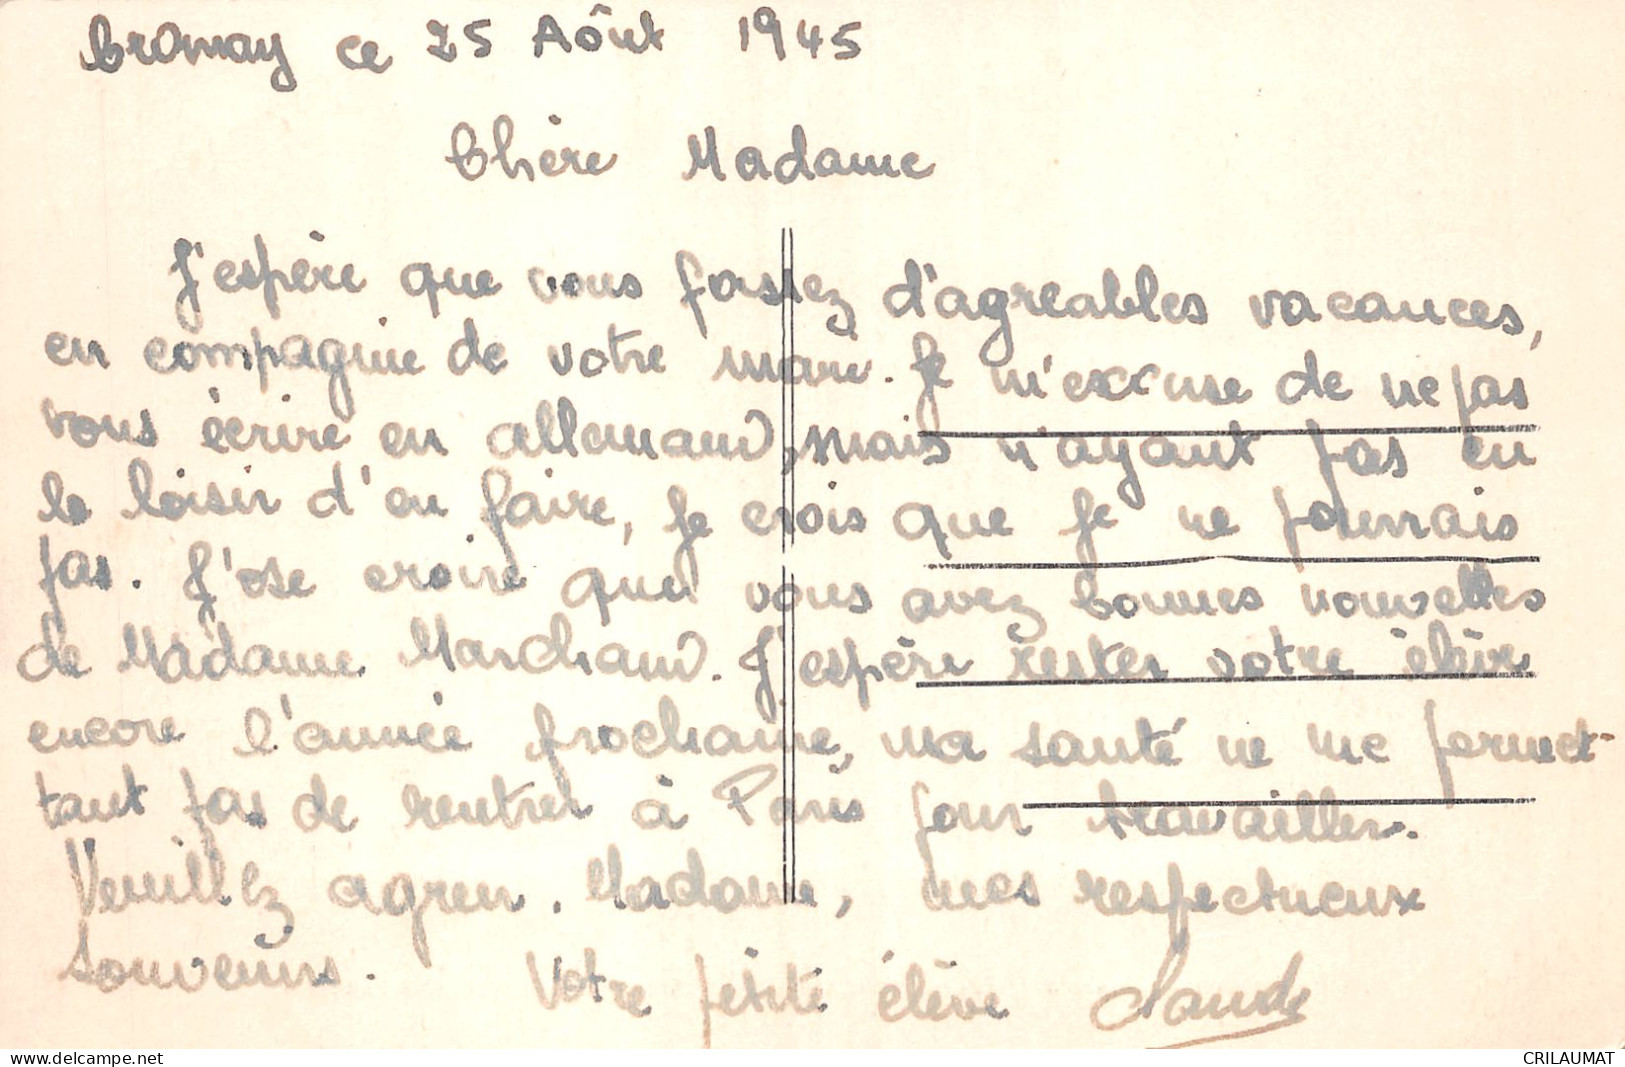 ce 25 Aôut 1945
Chère Madame
J'espère que vous fassiez d'agréables vacances,
en compagnie de votre mari. Je m'excuse de ne pas
vous écrire en allemand, mais n'ayant pas eu
le loisir d'en faire, je crois que je ne pourrais
pas. J'ose croire que vous avez bonnes nouvelles
de Madame Marchand. J'espère rester votre élève
encore l'année prochaine, ma santé ne me permet-
tant pas de rentrer à Paris pour travailler.
Veuillez agréer. Madame, mes respectueux
souvenirs. Votre petite élève Claude
CRILAUMAT